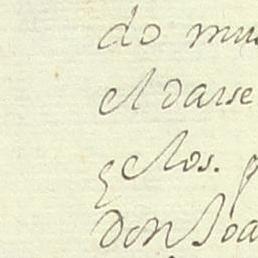 do mu
el darse
çelos.
don Joa